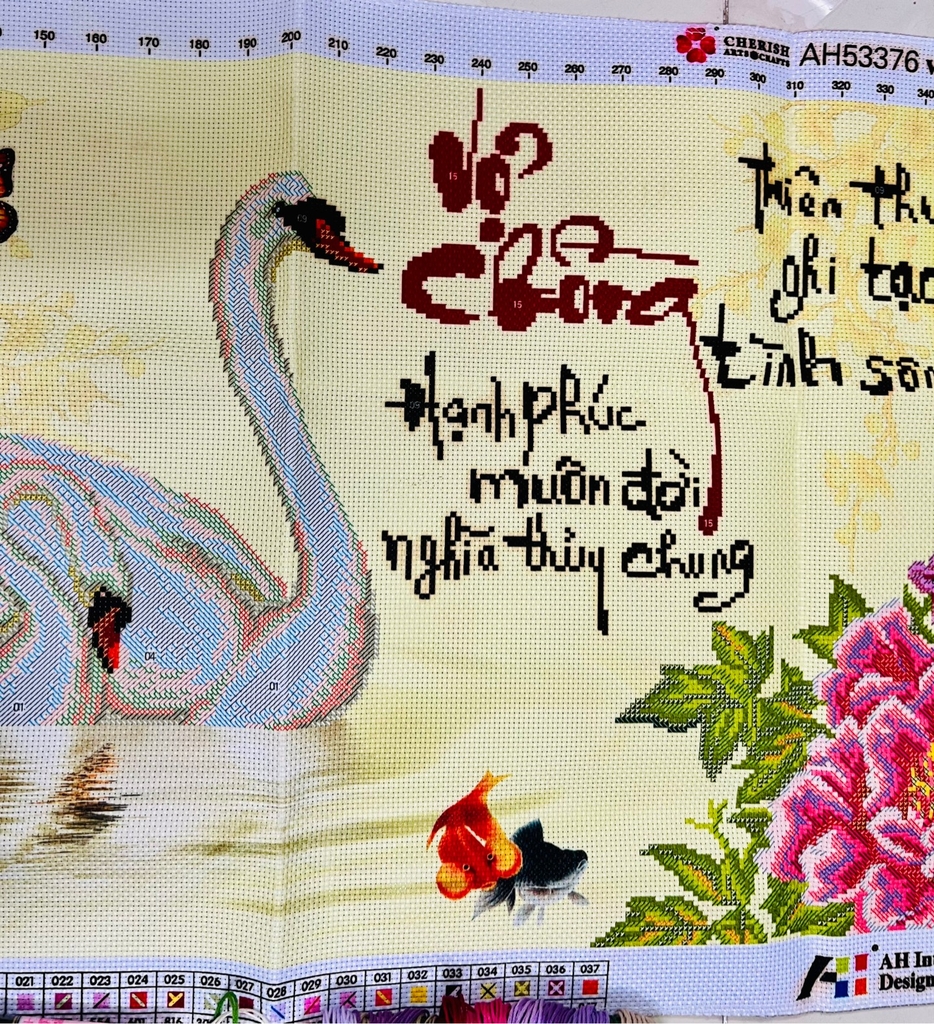 150 160 170 180 190 200 210 220 230 240 250 260 270 280 290 300 310 320 330 340
CHERISH
ARTS & CRAFTS
AH53376
Vợ
Chồng
15
15
15
Hạnh phúc
muôn đời
nghĩa thủy chung
09
thiên thu
ghi tạc
tình son
09
09
04
01
01
AH
Design
021 022 023 024 025 026 027 028 029 030 031 032 033 034 035 036 037